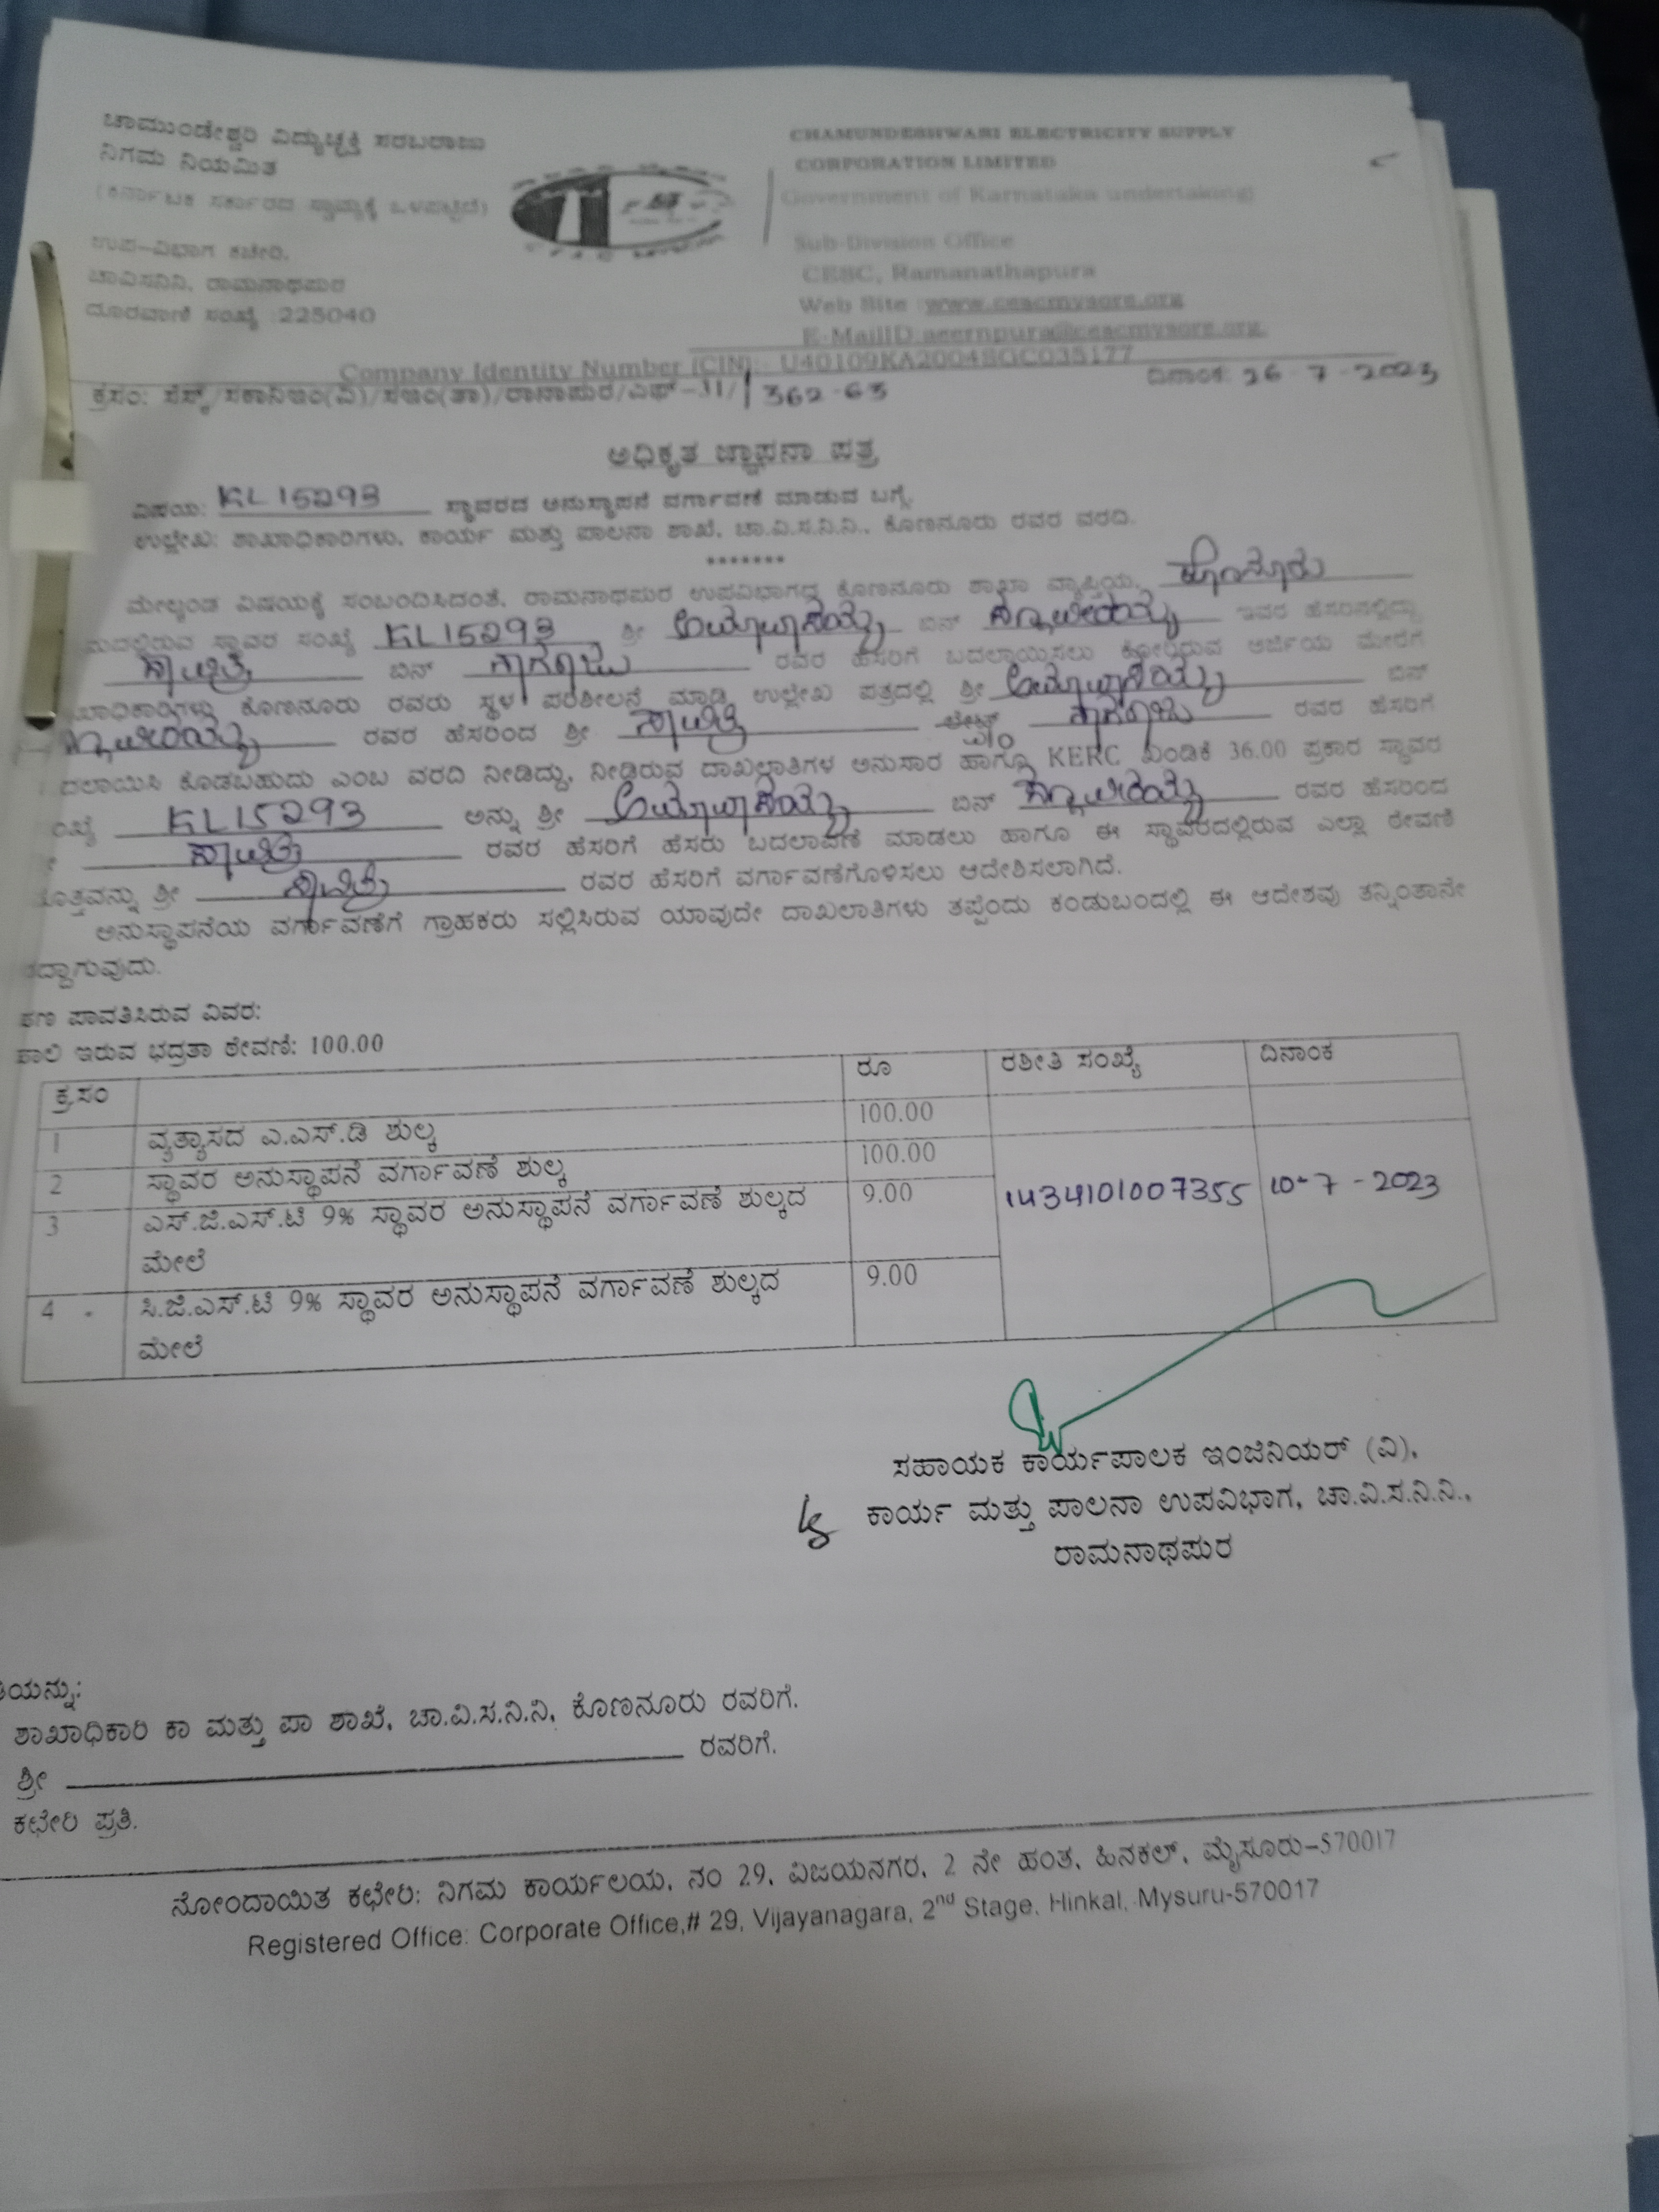 ಚಾಮುಂಡೇಶ್ವರಿ ವಿದ್ಯುಚ್ಛಕ್ತಿ ಸರಬರಾಜು
ನಿಗಮ ನಿಯಮಿತ
(ಕರ್ನಾಟಕ ಸರ್ಕಾರದ ಸ್ವಾಮ್ಯಕ್ಕೆ ಒಳಪಟ್ಟಿದೆ)
ಉಪ-ವಿಭಾಗ ಕಚೇರಿ,
ಚಾವಿಸನಿನಿ, ರಾಮನಾಥಪುರ
ದೂರವಾಣಿ ಸಂಖ್ಯೆ :225040
CHAMUNDESHWARI ELECTRICITY SUPPLY
CORPORATION LIMITED
Government of Karnataka undertaking)
Sub-Division Office
CESC, Ramanathapura
Web Site :www.cescmysore.org
E-MailID:aeernpura@cescmysore.org.
Company Identity Number (CIN):- U40109KA2004SGC035177
ಕ್ರಸಂ: ಸೆಸ್ಕ್/ಸಕಾನಿಇಂ(ವಿ)/ಸಇಂ(ತಾ)/ರಾನಾಪುರ/ಎಫ್-31/ 362-63 ದಿನಾಂಕ: 26-7-2023
ಅಧಿಕೃತ ಜ್ಞಾಪನಾ ಪತ್ರ
ವಿಷಯ: KL15293 ಸ್ಥಾವರದ ಅನುಸ್ಥಾಪನೆ ವರ್ಗಾವಣೆ ಮಾಡುವ ಬಗ್ಗೆ.
ಉಲ್ಲೇಖ: ಶಾಖಾಧಿಕಾರಿಗಳು, ಕಾರ್ಯ ಮತ್ತು ಪಾಲನಾ ಶಾಖೆ, ಚಾ.ವಿ.ಸ.ನಿ.ನಿ., ಕೊಣನೂರು ರವರ ವರದಿ.
*******
ಮೇಲ್ಕಂಡ ವಿಷಯಕ್ಕೆ ಸಂಬಂದಿಸಿದಂತೆ, ರಾಮನಾಥಪುರ ಉಪವಿಭಾಗದ ಕೊಣನೂರು ಶಾಖಾ ವ್ಯಾಪ್ತಿಯ, ಹೊನ್ನೂರು
ಮದಲ್ಲಿರುವ ಸ್ಥಾವರ ಸಂಖ್ಯೆ KL15293 ಶ್ರೀ ಬಿನ್ ಇವರ ಹೆಸರಿನಲ್ಲಿದ್ದು
ಸಾವಿತ್ರಿ ಬಿನ್ ನಾಗರಾಜು ರವರ ಹೆಸರಿಗೆ ಬದಲಾಯಿಸಲು ಕೋರಿರುವ ಅರ್ಜಿಯ ಮೇರೆಗೆ
ಖಾಧಿಕಾರಿಗಳು ಕೊಣನೂರು ರವರು ಸ್ಥಳ ಪರಿಶೀಲನೆ ಮಾಡಿ ಉಲ್ಲೇಖ ಪತ್ರದಲ್ಲಿ ಶ್ರೀ ಬಿನ್
ರವರ ಹೆಸರಿಂದ ಶ್ರೀ ಸಾವಿತ್ರಿ W/O ನಾಗರಾಜು ರವರ ಹೆಸರಿಗೆ
ದಲಾಯಿಸಿ ಕೊಡಬಹುದು ಎಂಬ ವರದಿ ನೀಡಿದ್ದು, ನೀಡಿರುವ ದಾಖಲಾತಿಗಳ ಅನುಸಾರ ಹಾಗೂ KERC ಖಂಡಿಕೆ 36.00 ಪ್ರಕಾರ ಸ್ಥಾವರ
ಂಖ್ಯೆ KL15293 ಅನ್ನು ಶ್ರೀ ಬಿನ್ ರವರ ಹೆಸರಿಂದ
ಸಾವಿತ್ರಿ ರವರ ಹೆಸರಿಗೆ ಹೆಸರು ಬದಲಾವಣೆ ಮಾಡಲು ಹಾಗೂ ಈ ಸ್ಥಾವರದಲ್ಲಿರುವ ಎಲ್ಲಾ ಠೇವಣಿ
ೊತ್ತವನ್ನು ಶ್ರೀ ಸಾವಿತ್ರಿ ರವರ ಹೆಸರಿಗೆ ವರ್ಗಾವಣೆಗೊಳಿಸಲು ಆದೇಶಿಸಲಾಗಿದೆ.
ಅನುಸ್ಥಾಪನೆಯ ವರ್ಗಾವಣೆಗೆ ಗ್ರಾಹಕರು ಸಲ್ಲಿಸಿರುವ ಯಾವುದೇ ದಾಖಲಾತಿಗಳು ತಪ್ಪೆಂದು ಕಂಡುಬಂದಲ್ಲಿ ಈ ಆದೇಶವು ತನ್ನಿಂತಾನೇ
ರದ್ದಾಗುವುದು.
ಹಣ ಪಾವತಿಸಿರುವ ವಿವರ:
ಹಾಲಿ ಇರುವ ಭದ್ರತಾ ಠೇವಣಿ: 100.00
ಕ್ರ.ಸಂ ರೂ ರಶೀತಿ ಸಂಖ್ಯೆ ದಿನಾಂಕ
1 ವ್ಯತ್ಯಾಸದ ಎ.ಎಸ್.ಡಿ ಶುಲ್ಕ 100.00
2 ಸ್ಥಾವರ ಅನುಸ್ಥಾಪನೆ ವರ್ಗಾವಣೆ ಶುಲ್ಕ 100.00
3 ಎಸ್.ಜಿ.ಎಸ್.ಟಿ 9% ಸ್ಥಾವರ ಅನುಸ್ಥಾಪನೆ ವರ್ಗಾವಣೆ ಶುಲ್ಕದ 9.00 1434101007355 10-7-2023
ಮೇಲೆ
4 ಸಿ.ಜಿ.ಎಸ್.ಟಿ 9% ಸ್ಥಾವರ ಅನುಸ್ಥಾಪನೆ ವರ್ಗಾವಣೆ ಶುಲ್ಕದ 9.00
ಮೇಲೆ
ಸಹಾಯಕ ಕಾರ್ಯಪಾಲಕ ಇಂಜಿನಿಯರ್ (ವಿ),
ಕಾರ್ಯ ಮತ್ತು ಪಾಲನಾ ಉಪವಿಭಾಗ, ಚಾ.ವಿ.ಸ.ನಿ.ನಿ.,
ರಾಮನಾಥಪುರ
ತಿಯನ್ನು:
ಶಾಖಾಧಿಕಾರಿ ಕಾ ಮತ್ತು ಪಾ ಶಾಖೆ, ಚಾ.ವಿ.ಸ.ನಿ.ನಿ, ಕೊಣನೂರು ರವರಿಗೆ.
ಶ್ರೀ ರವರಿಗೆ.
ಕಛೇರಿ ಪ್ರತಿ.
ನೋಂದಾಯಿತ ಕಛೇರಿ: ನಿಗಮ ಕಾರ್ಯಲಯ, ನಂ 29, ವಿಜಯನಗರ, 2 ನೇ ಹಂತ, ಹಿನಕಲ್, ಮೈಸೂರು-570017
Registered Office: Corporate Office,# 29, Vijayanagara, 2nd Stage, Hinkal, Mysuru-570017